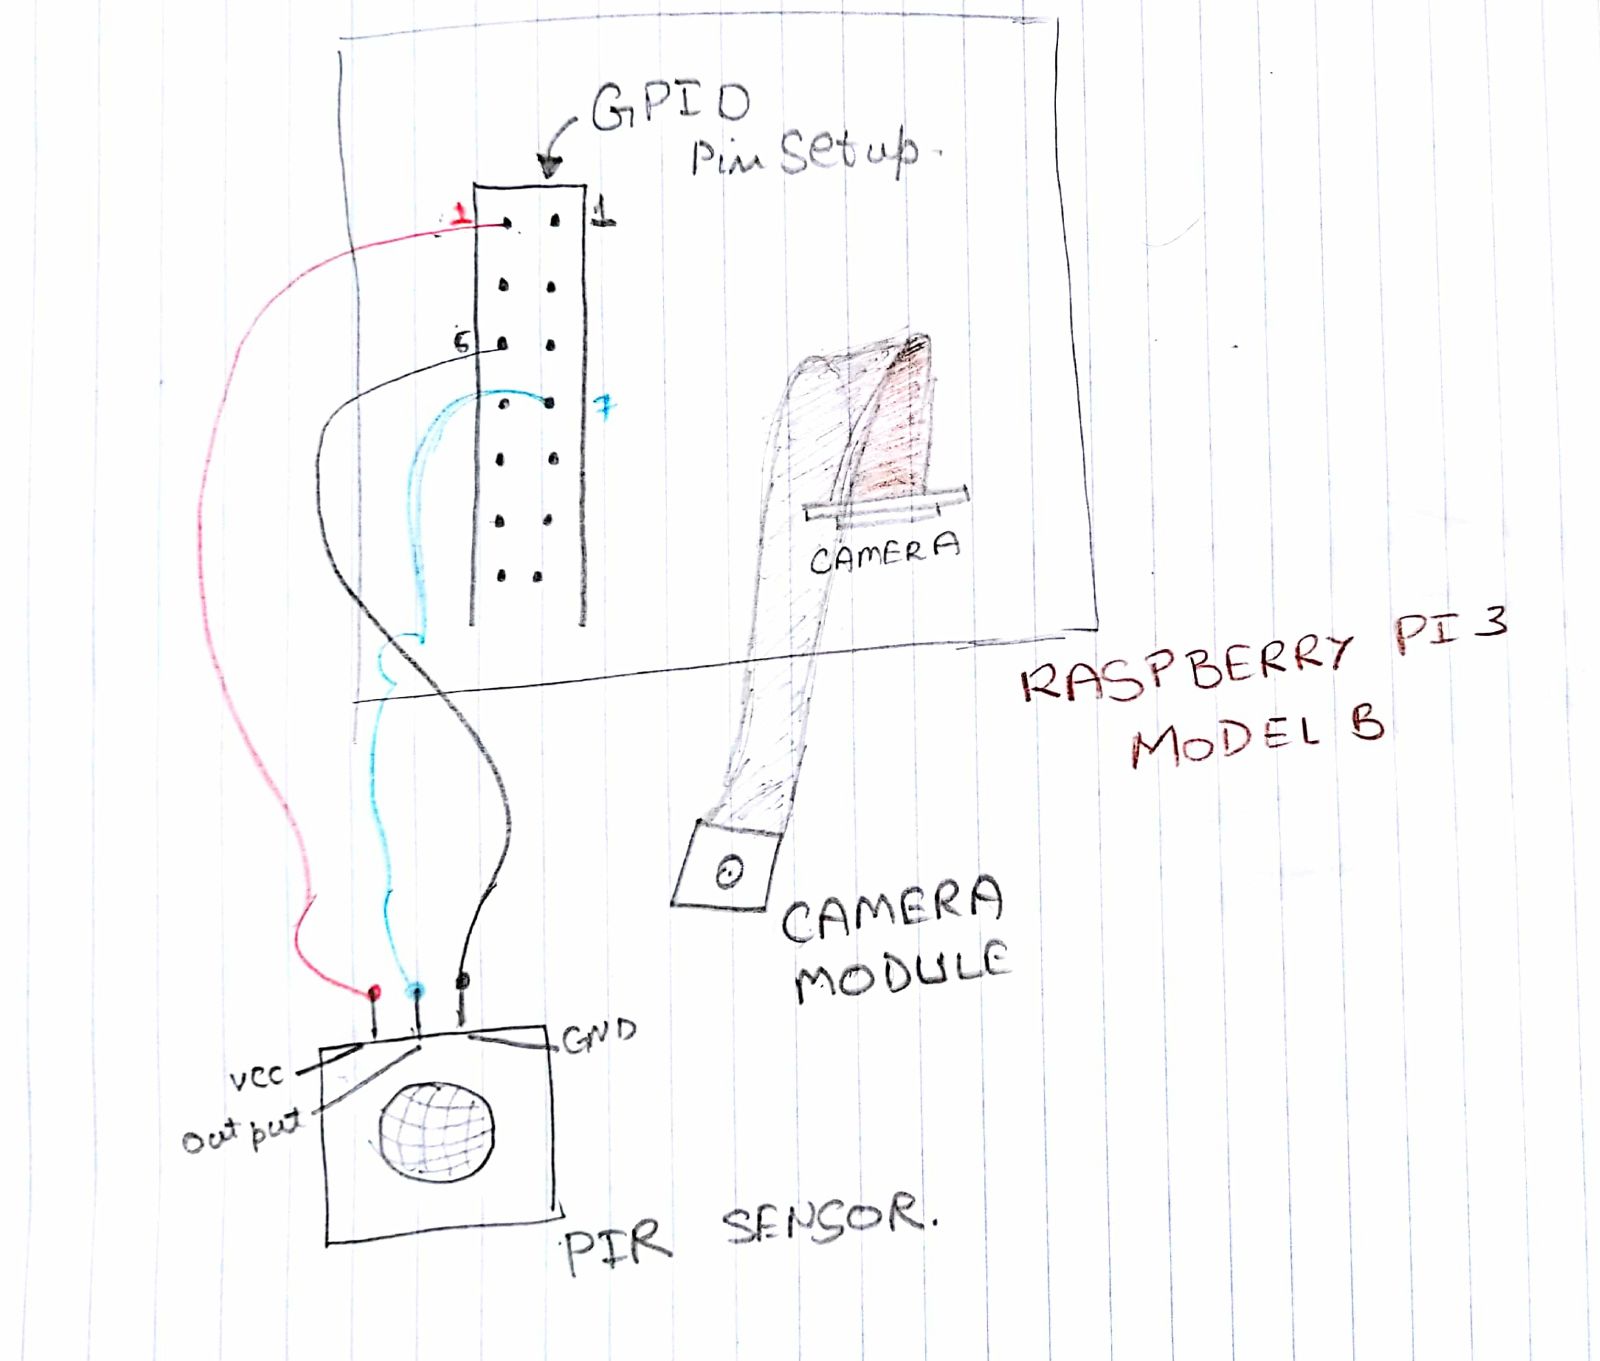 GPIO
Pin Setup.
1 1
6
7
CAMERA
RASPBERRY PI 3
MODEL B
CAMERA
MODULE
GND
VCC
output
PIR SENSOR.